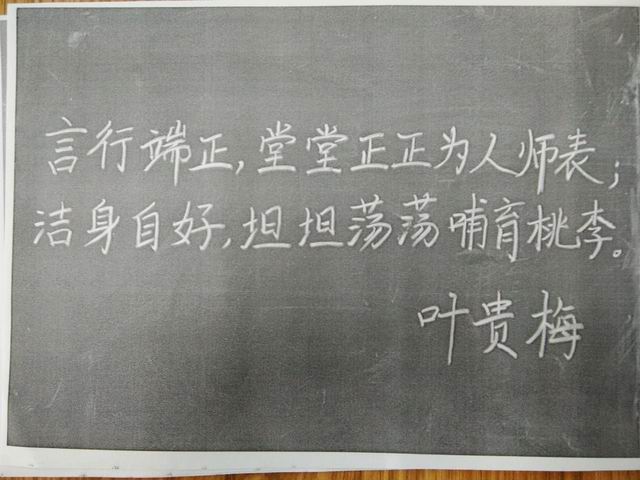 言行端正,堂堂正正为人师表;
洁身自好,坦坦荡荡哺育桃李。
叶贵梅